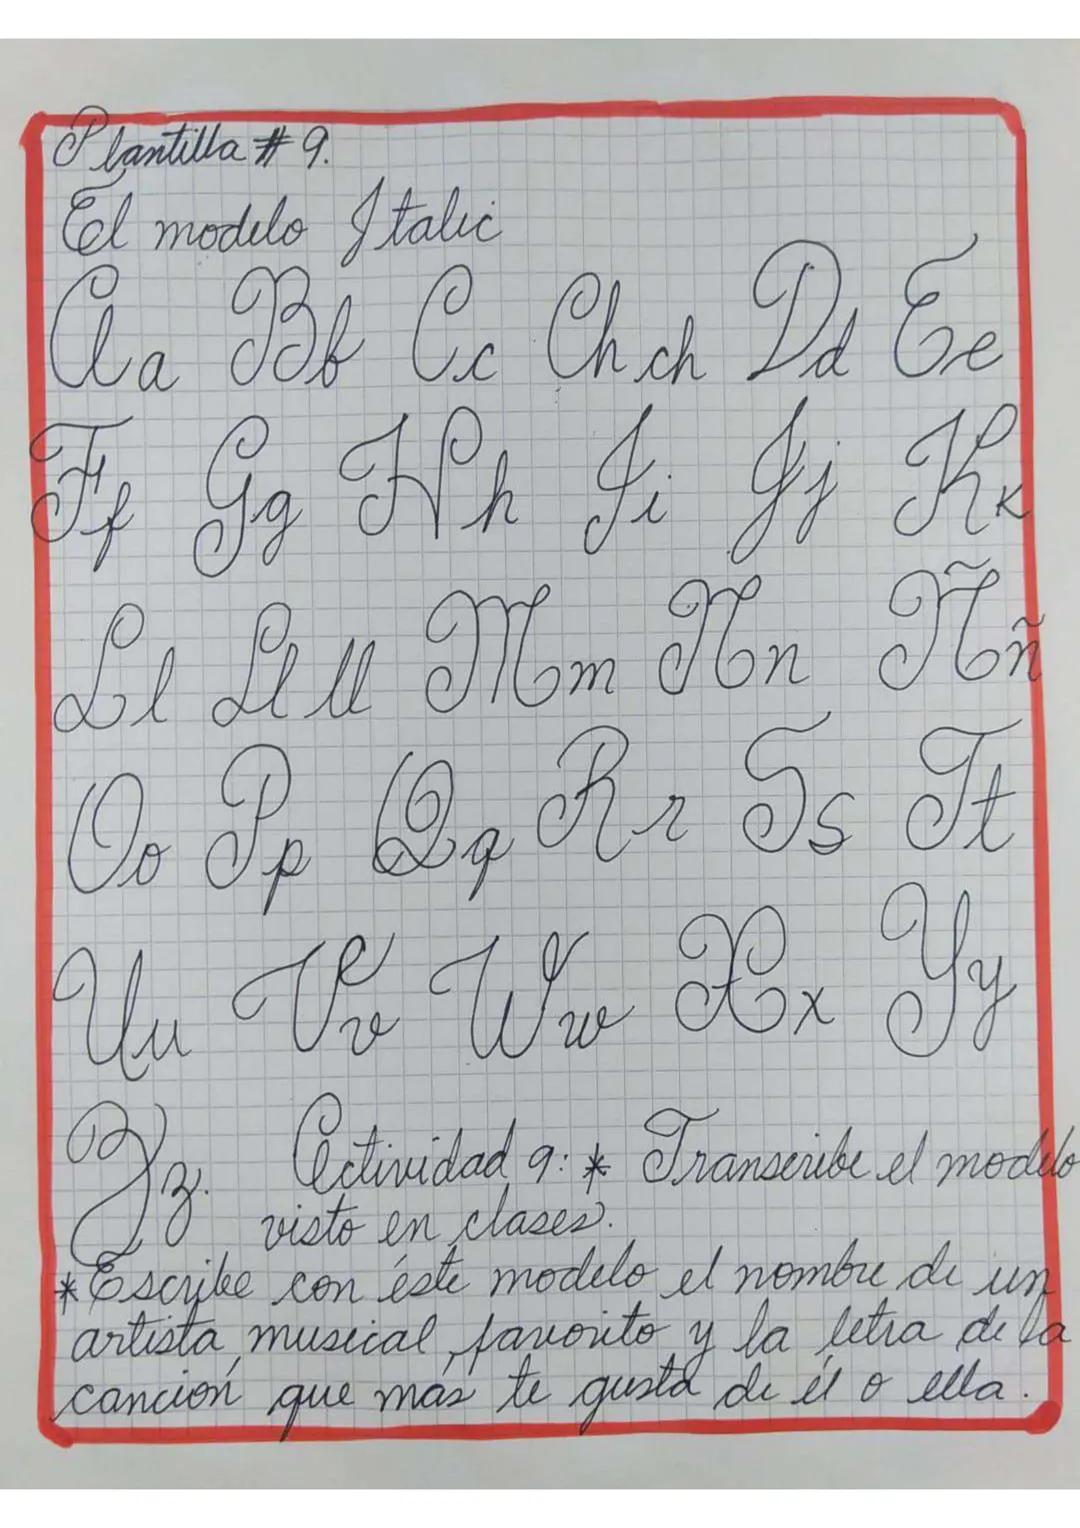 Plantilla # 9.
El modelo Italic
Aa Bb Cc Ch ch Dd Ee
Ff Gg Hh Ii Jj Kk
Ll Ll ll Mm Nn Ññ
Oo Pp Qq Rr Ss Tt
Uu Vv Ww Xx Yy
Zz. Actividad 9: * Transcribe el modelo
visto en clases.
* Escribe con éste modelo el nombre de un
artista musical favorito y la letra de la
canción que más te gusta de él o ella.